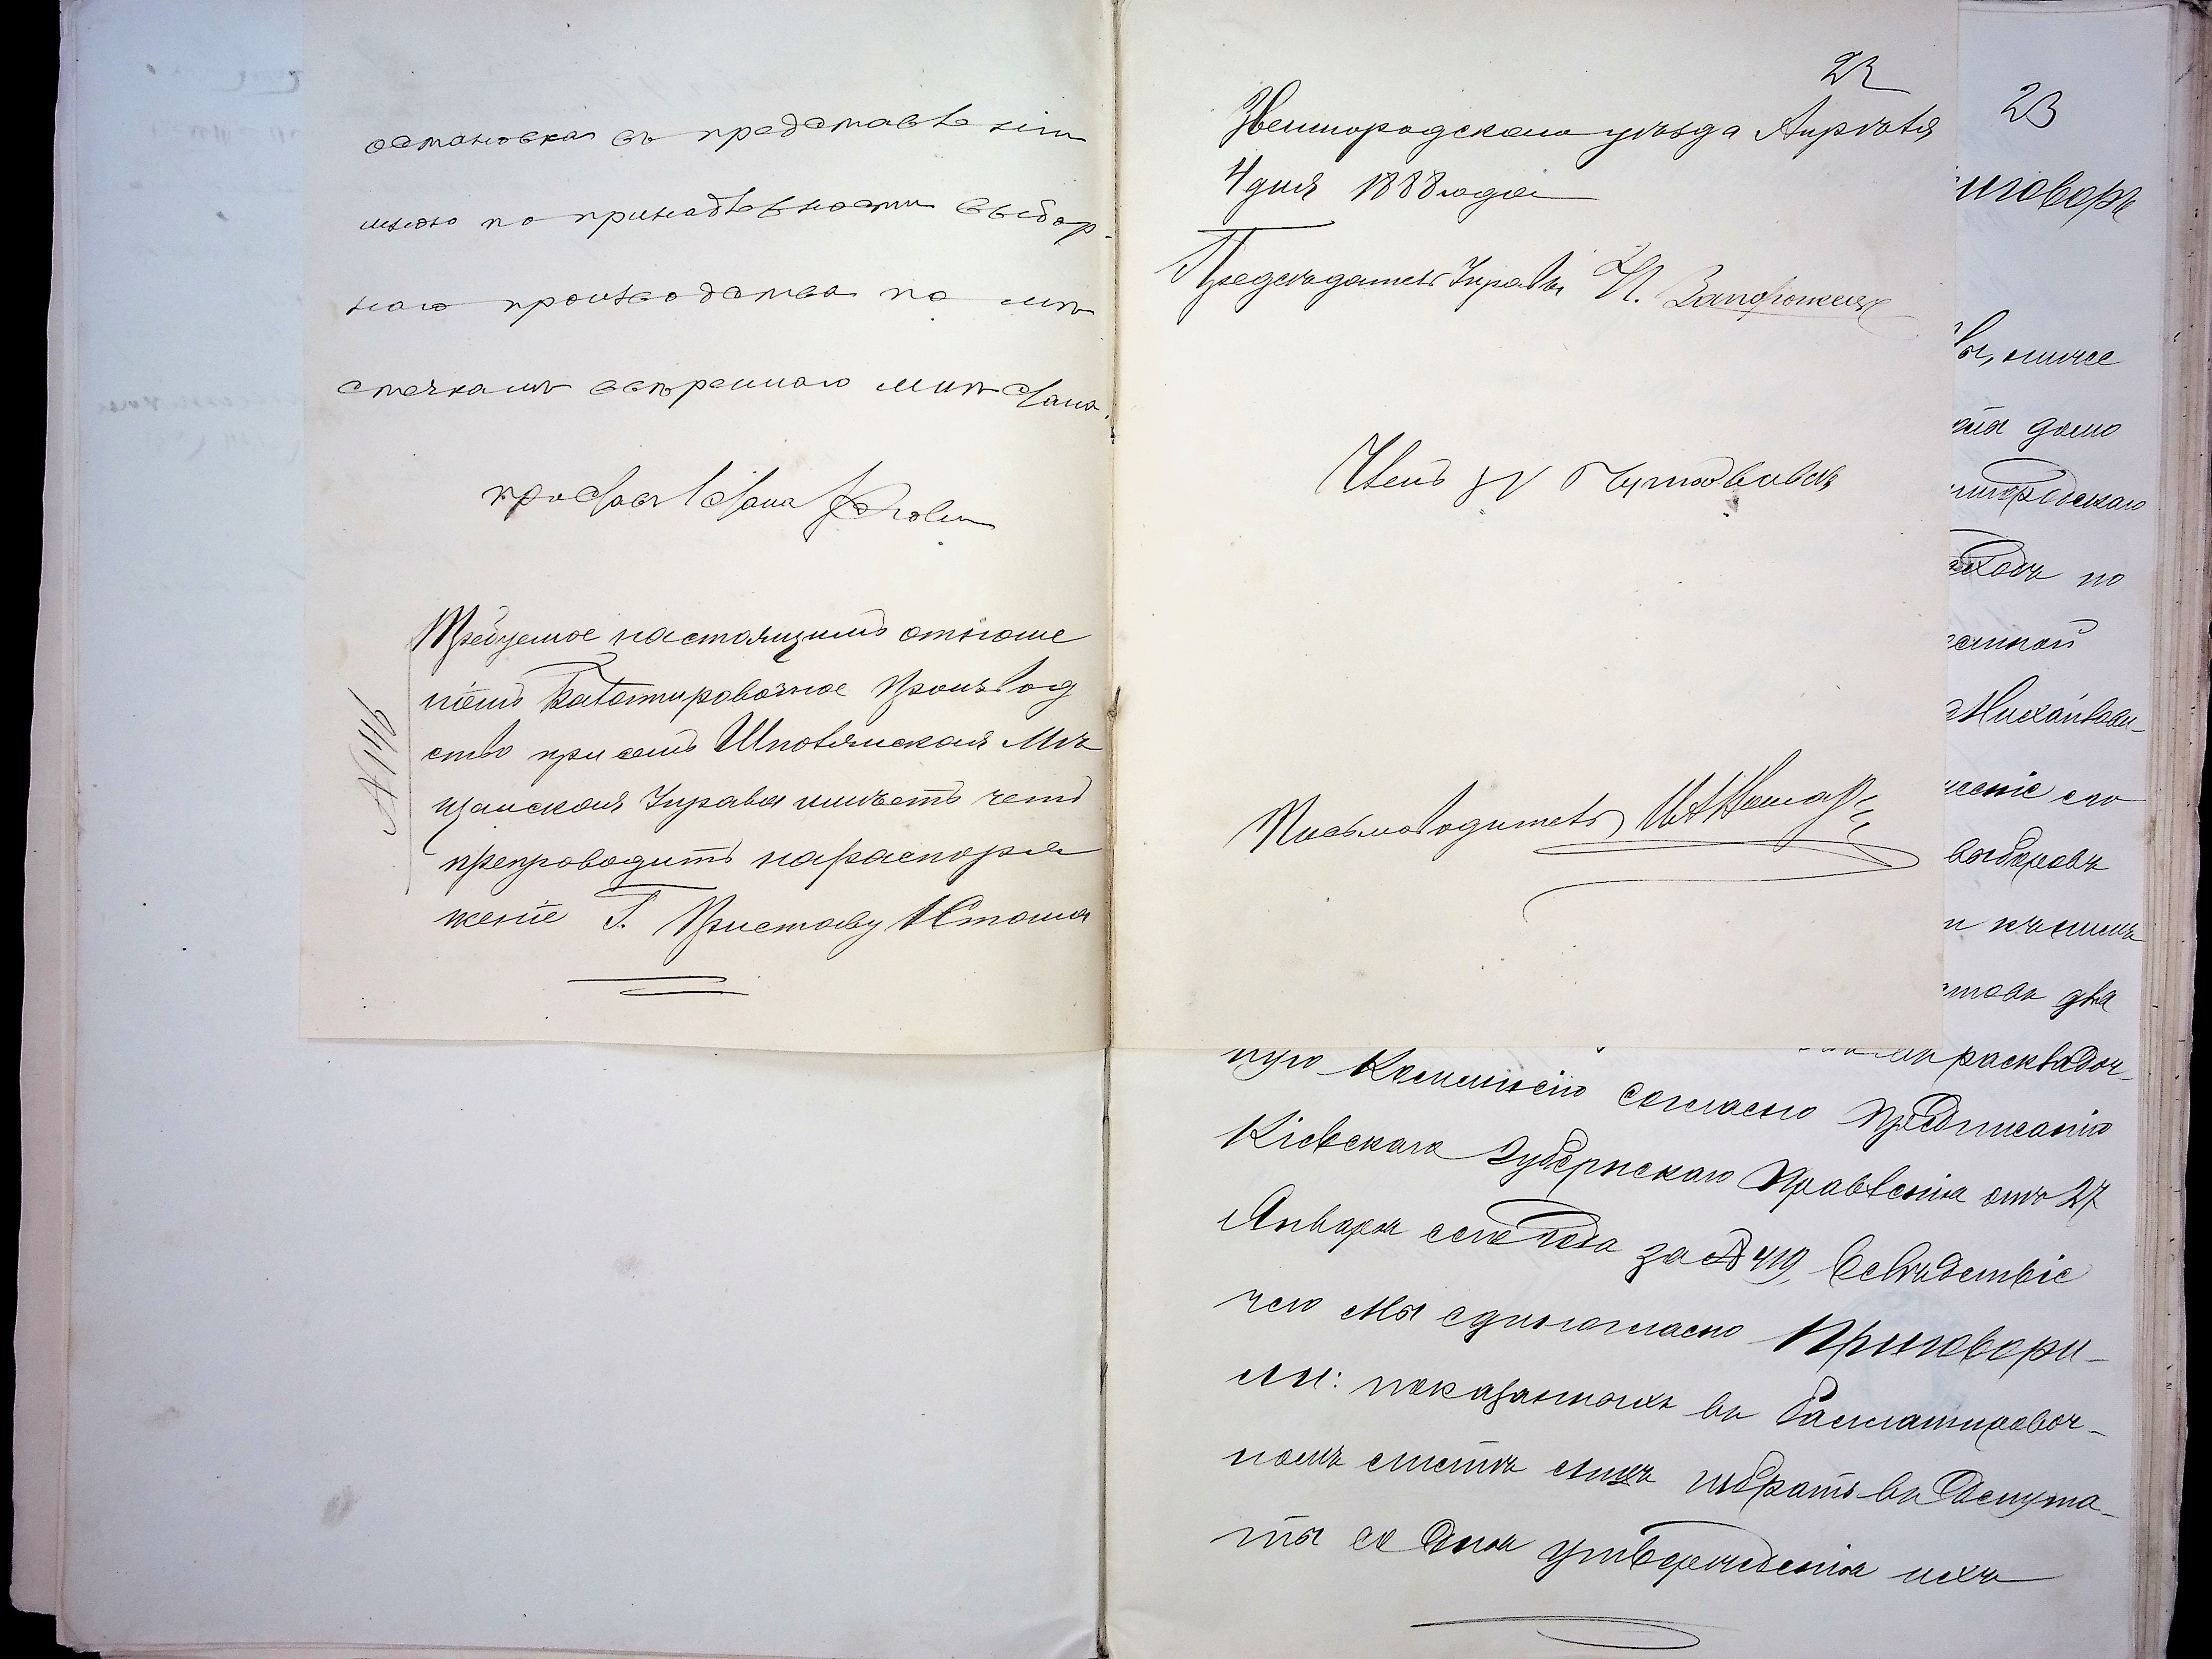 остановка въ представленіи
мною по принадлежности выбор-
наго производства по мѣ
стечкамъ ввѣреннаго мнѣ Стана.
Приставъ Стана
Требуемое настоящимъ отноше
ніемъ Балотировочное Производ
ство при семъ Шполянская Мѣ
щанская Управа имѣетъ честь
препроводить на распоря
женіе Г. Приставу Стана
№ 146
22
Звенигородскаго уѣзда Апрѣля
4 дня 1888 года
Предсѣдатель Управы И.
Членъ
Письмоводитель
23
иговоръ
вы, ниже
домо
городскаго
по
Михайлови-
шеніе его
выборовъ
и къ нимъ
для
раскладоч-
ную Коммисію согласно Предписанію
Кіевскаго Губернскаго Правленія отъ 27
Января сего года за № 419, Вслѣдствіе
чего мы единогласно Приговори-
ли: показанныхъ въ баллотировоч-
номъ листѣ лицъ избрать въ Депута-
ты со дня утвержденія ихъ